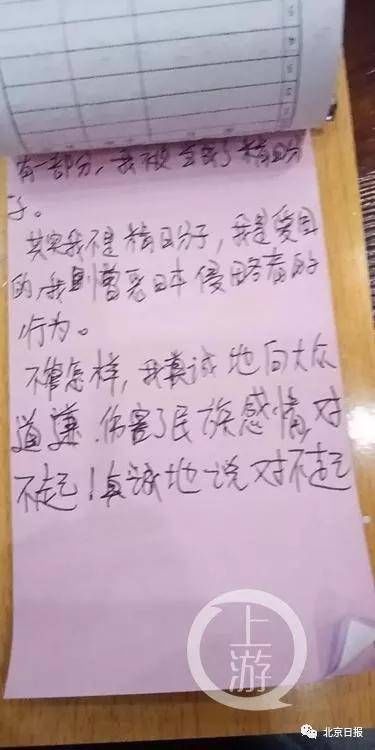 有一部分，我被当成了精日分
子。
其实我不是精日分子，我是爱国
的，我剧憎恶日本侵略者的
行为。
不管怎样，我真诚地向大众
道谦.伤害了民族感情,对
不起！真诚地说对不起
上游
北京日报